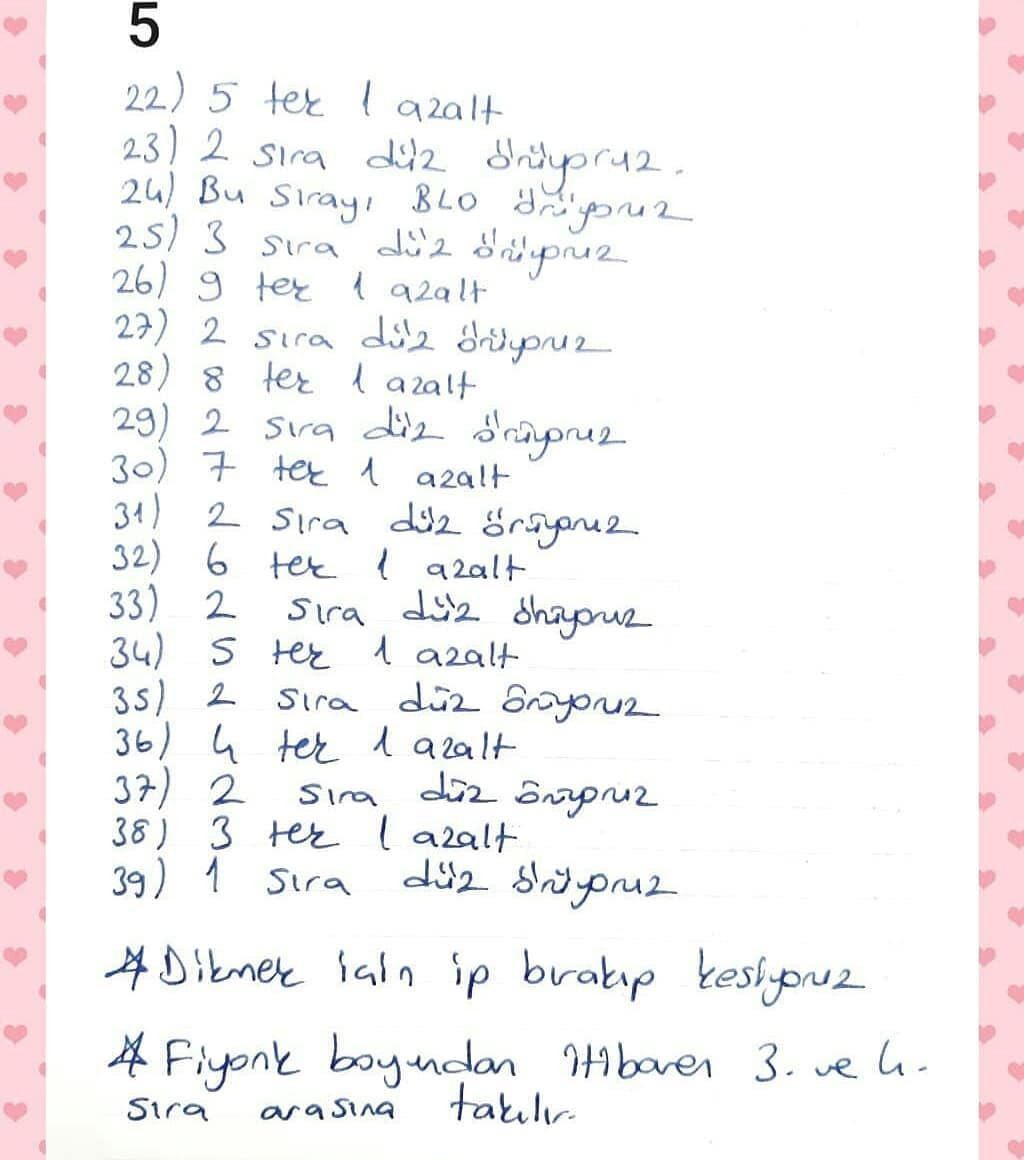 5
22) 5 tek 1 azalt
23) 2 sıra düz örüyoruz.
24) Bu Sırayı BLO örüyoruz
25) 3 sıra düz örüyoruz
26) 9 tek 1 azalt
27) 2 sıra düz örüyoruz
28) 8 tek 1 azalt
29) 2 sıra düz örüyoruz
30) 7 tek 1 azalt
31) 2 sıra düz örüyoruz
32) 6 tek 1 azalt
33) 2 sıra düz örüyoruz
34) 5 tek 1 azalt
35) 2 sıra düz örüyoruz
36) 4 tek 1 azalt
37) 2 sıra düz örüyoruz
38) 3 tek 1 azalt
39) 1 sıra düz örüyoruz
* Dikmek için ip bırakıp kesiyoruz
* Fiyonk boyundan itibaren 3. ve 4.
sıra arasına takılır.